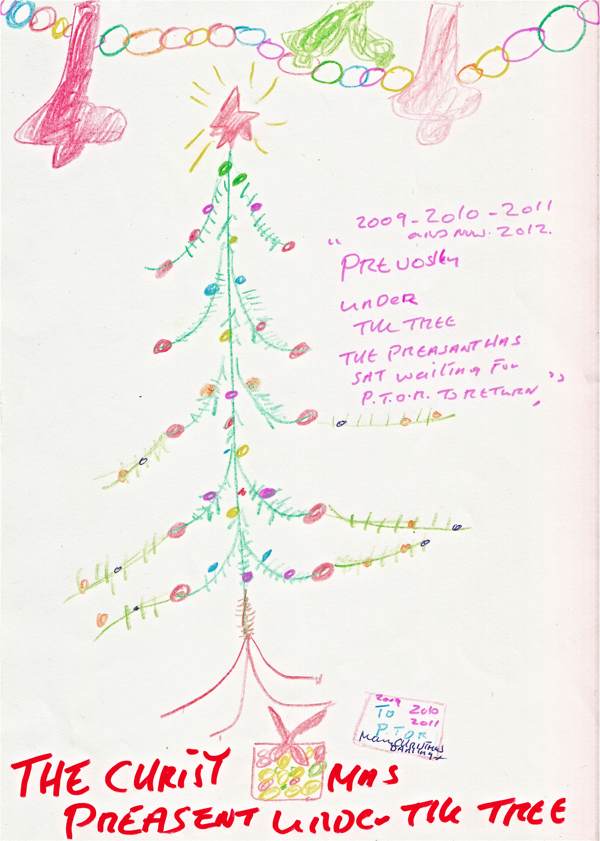 2009-2010-2011
and now. 2012.
"PREVOSLY
UNDER
THE TREE
THE PREASANT HAS
SAT waiting FOR
P.T.O.R. TO RETURN,"
2009
TO 2010
2011
P.TOR
CHRISTMAS
DARLING x
THE CHRIST MAS
PREASENT UNDER THE TREE